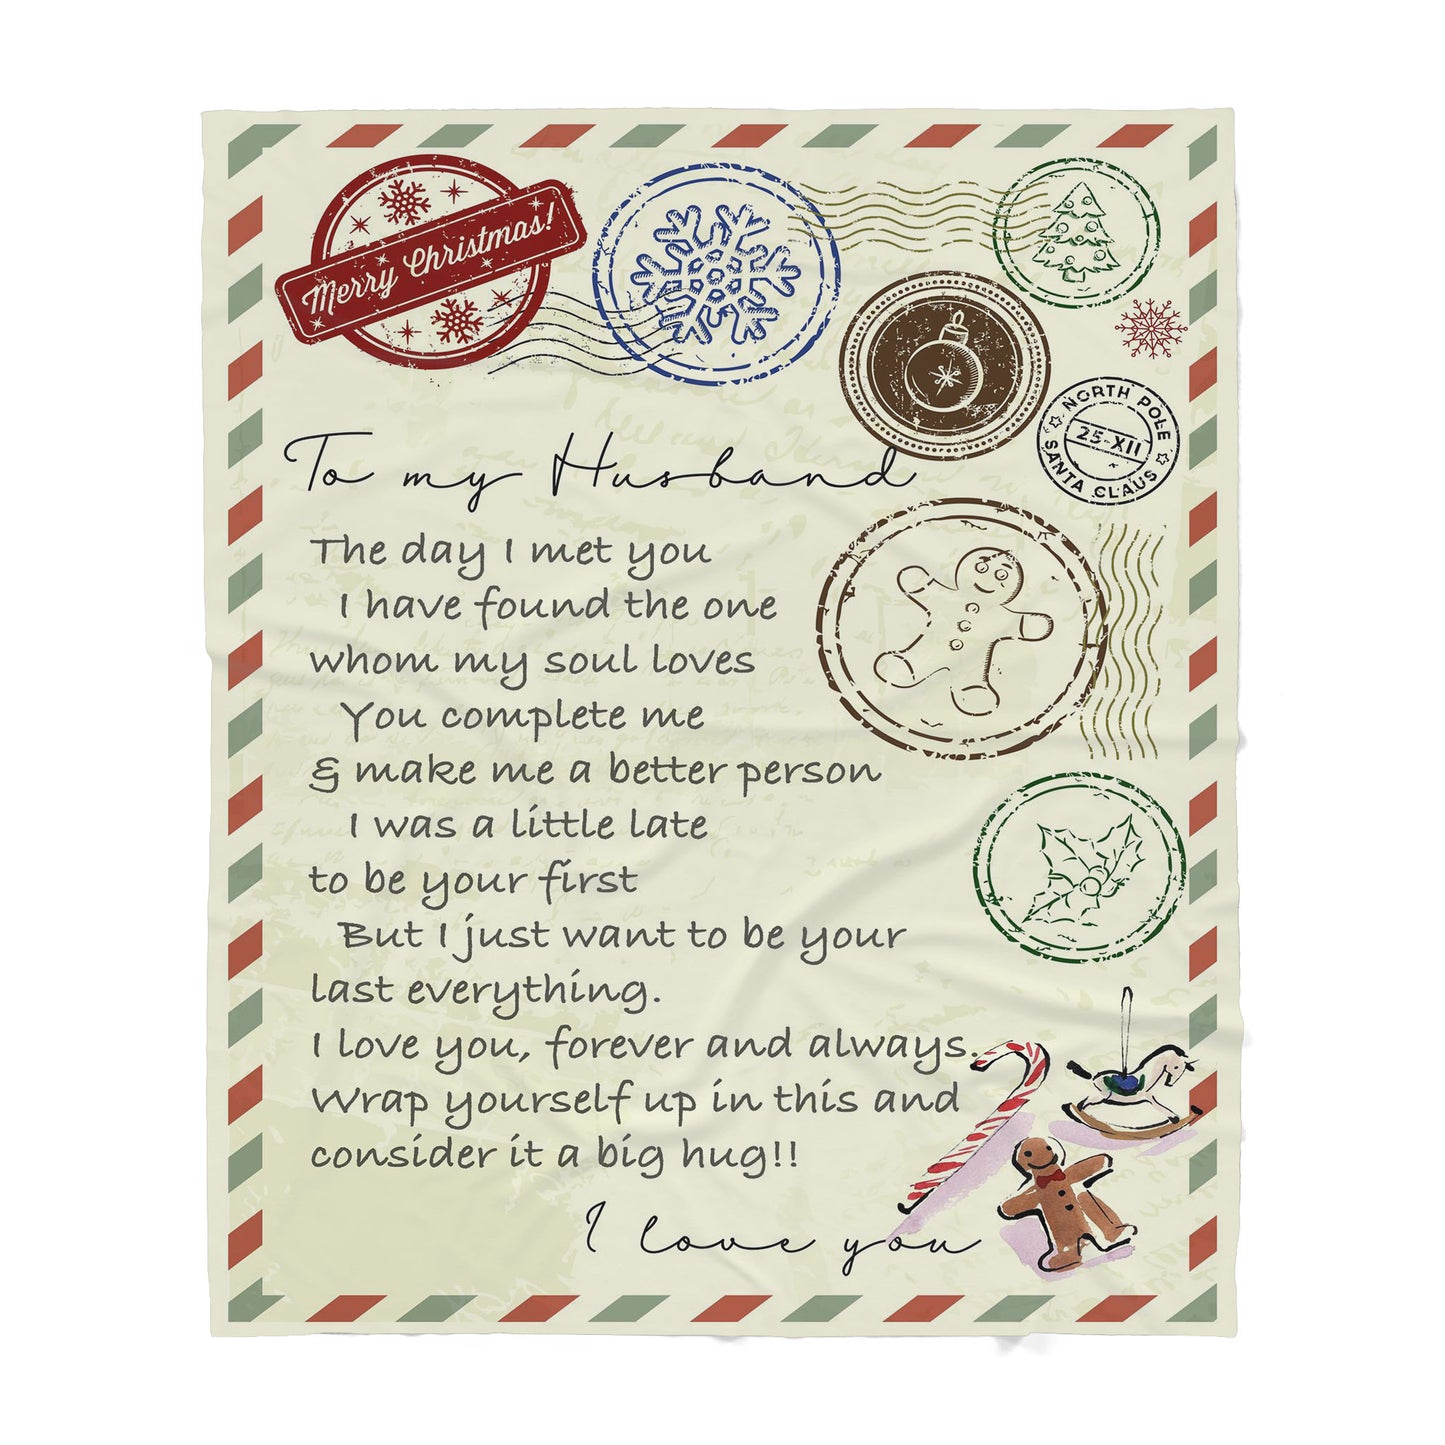 Merry Christmas!
NORTH POLE
25-XII
SANTA CLAUS
To my Husband
The day I met you
I have found the one
whom my soul loves
You complete me
& make me a better person
I was a little late
to be your first
But I just want to be your
last everything.
I love you, forever and always.
Wrap yourself up in this and
consider it a big hug!!
I love you